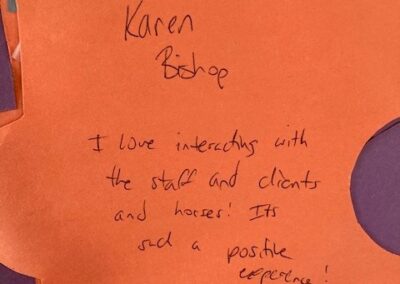 Karen
Bishop
I love interacting with
the staff and clients
and horses! Its
such a positive
experience!